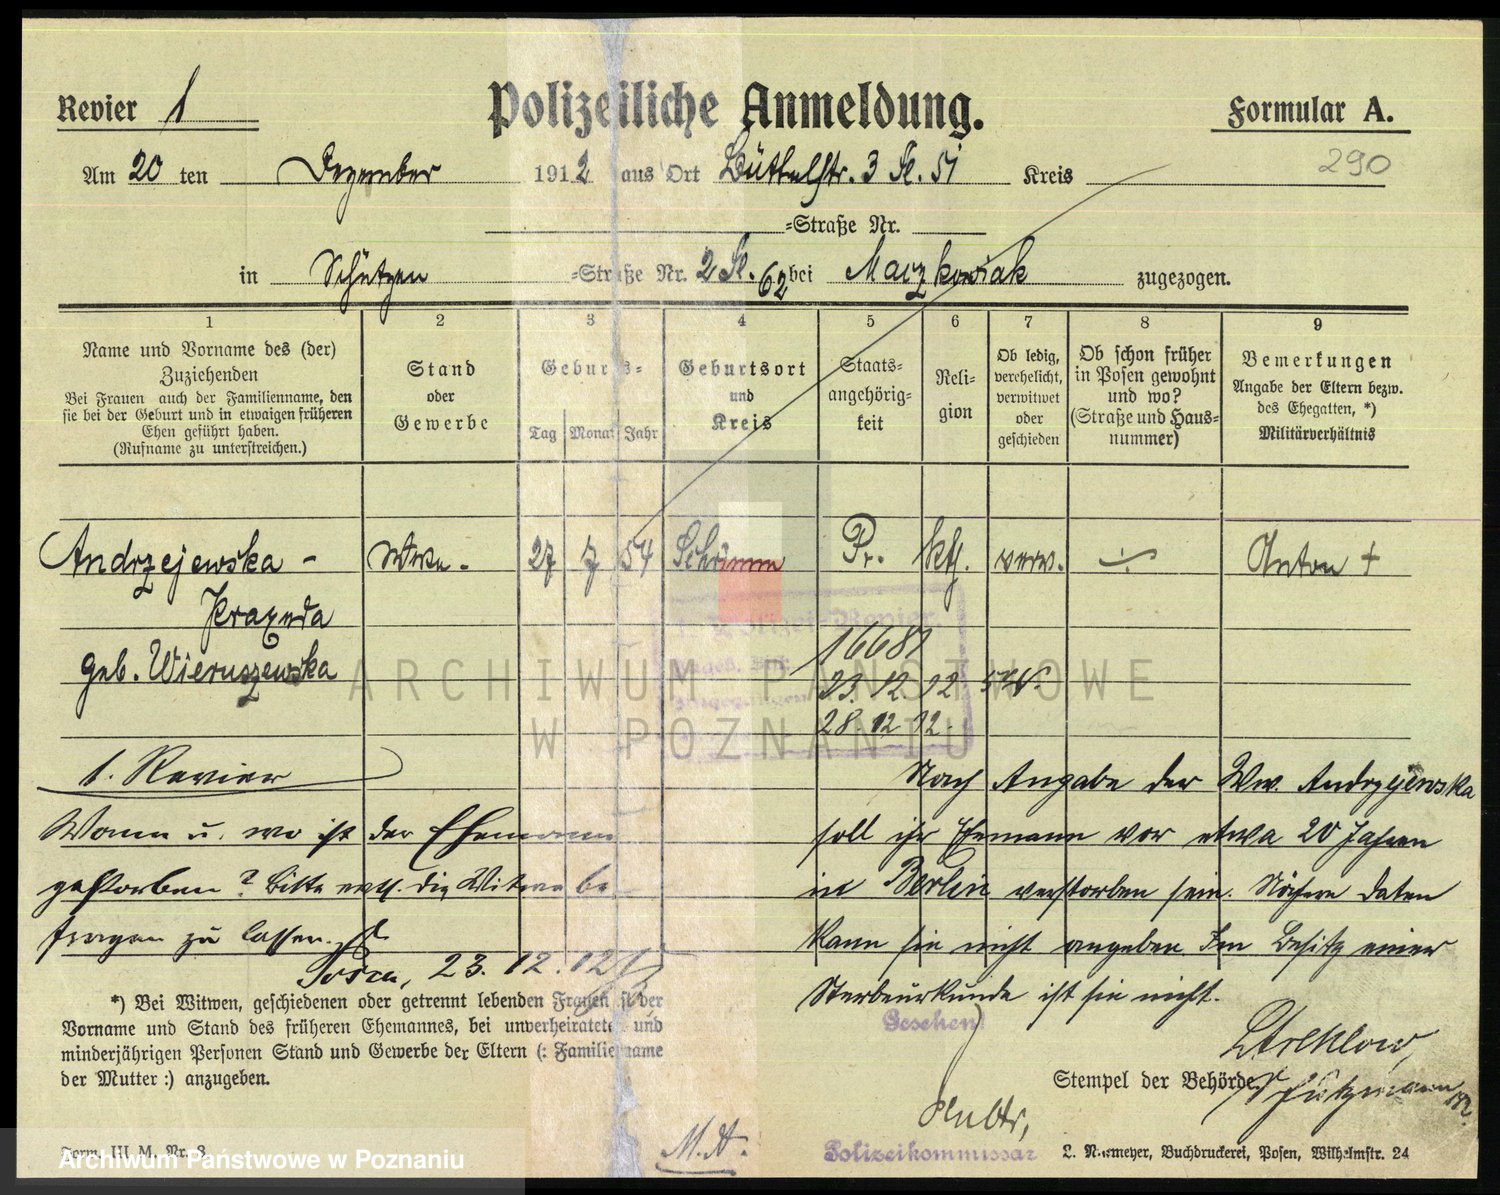 Revier 1
Polizeiliche Anmeldung.
Formular A.
290
Am 20 ten Dezember 1912 aus Ort Büttelstr. 3 Kreis
=Straße Nr.
in Schützen =Straße Nr. 2 62 bei Maczkowiak zugezogen.
1 2 3 4 5 6 7 8 9
Name und Vorname des (der)
Zuziehenden
Bei Frauen auch der Familienname, den
sie bei der Geburt und in etwaigen früheren
Ehen geführt haben.
(Rufname zu unterstreichen.)
Stand
oder
Gewerbe
Geburts=
Tag Monat Jahr
Geburtsort
und
Kreis
Staats-
angehörig-
keit
Reli-
gion
Ob ledig,
verehelicht,
verwitwet
oder
geschieden
Ob schon früher
in Posen gewohnt
und wo?
(Straße und Haus-
nummer)
Bemerkungen
Angabe der Eltern bezw.
des Ehegatten, *)
Militärverhältnis
Andrzejewska - Wwe. 27 7 54 Schrimm Pr. kth. verw. Anton †
Praxeda
geb. Wieruszewska
16681
23. 12. 12
28 12 12
1. Revier
Wann u. wo ist der Ehemann
gestorben? Bitte evtl. die Witwe be-
fragen zu lassen.
Posen, 23. 12. 12
Nach Angabe der Ww. Andrzejewska
soll ihr Ehemann vor etwa 20 Jahren
in Berlin verstorben sein. Nähere Daten
kann sie nicht angeben. Im Besitz einer
Sterbeurkunde ist sie nicht.
*) Bei Witwen, geschiedenen oder getrennt lebenden Frauen ist der
Vorname und Stand des früheren Ehemannes, bei unverheirateten und
minderjährigen Personen Stand und Gewerbe der Eltern (: Familienname
der Mutter :) anzugeben.
Gesehen
Stempel der Behörde.
Schutzmann
Polizeikommissar
M. A.
Form. III M. Nr. 8
L. Niemeyer, Buchdruckerei, Posen, Wilhelmstr. 24
ARCHIWUM PAŃSTWOWE
W POZNANIU
Archiwum Państwowe w Poznaniu